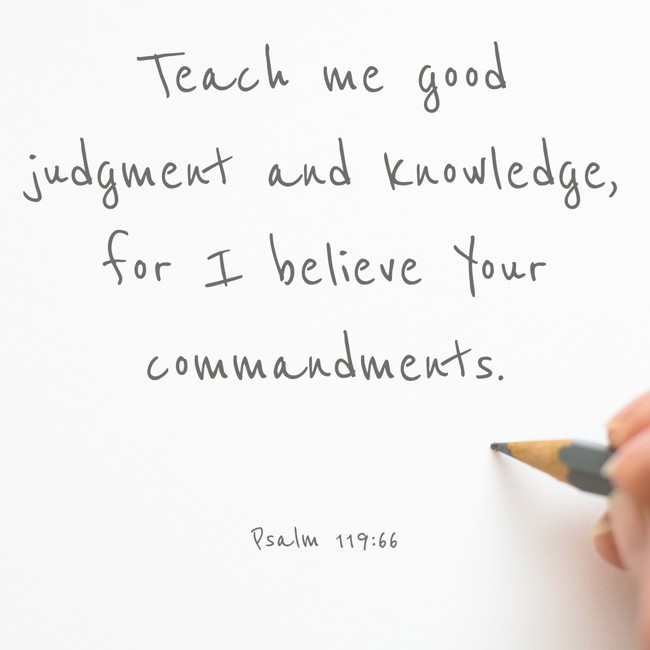 Teach me good
judgment and knowledge,
for I believe Your
commandments.
Psalm 119:66